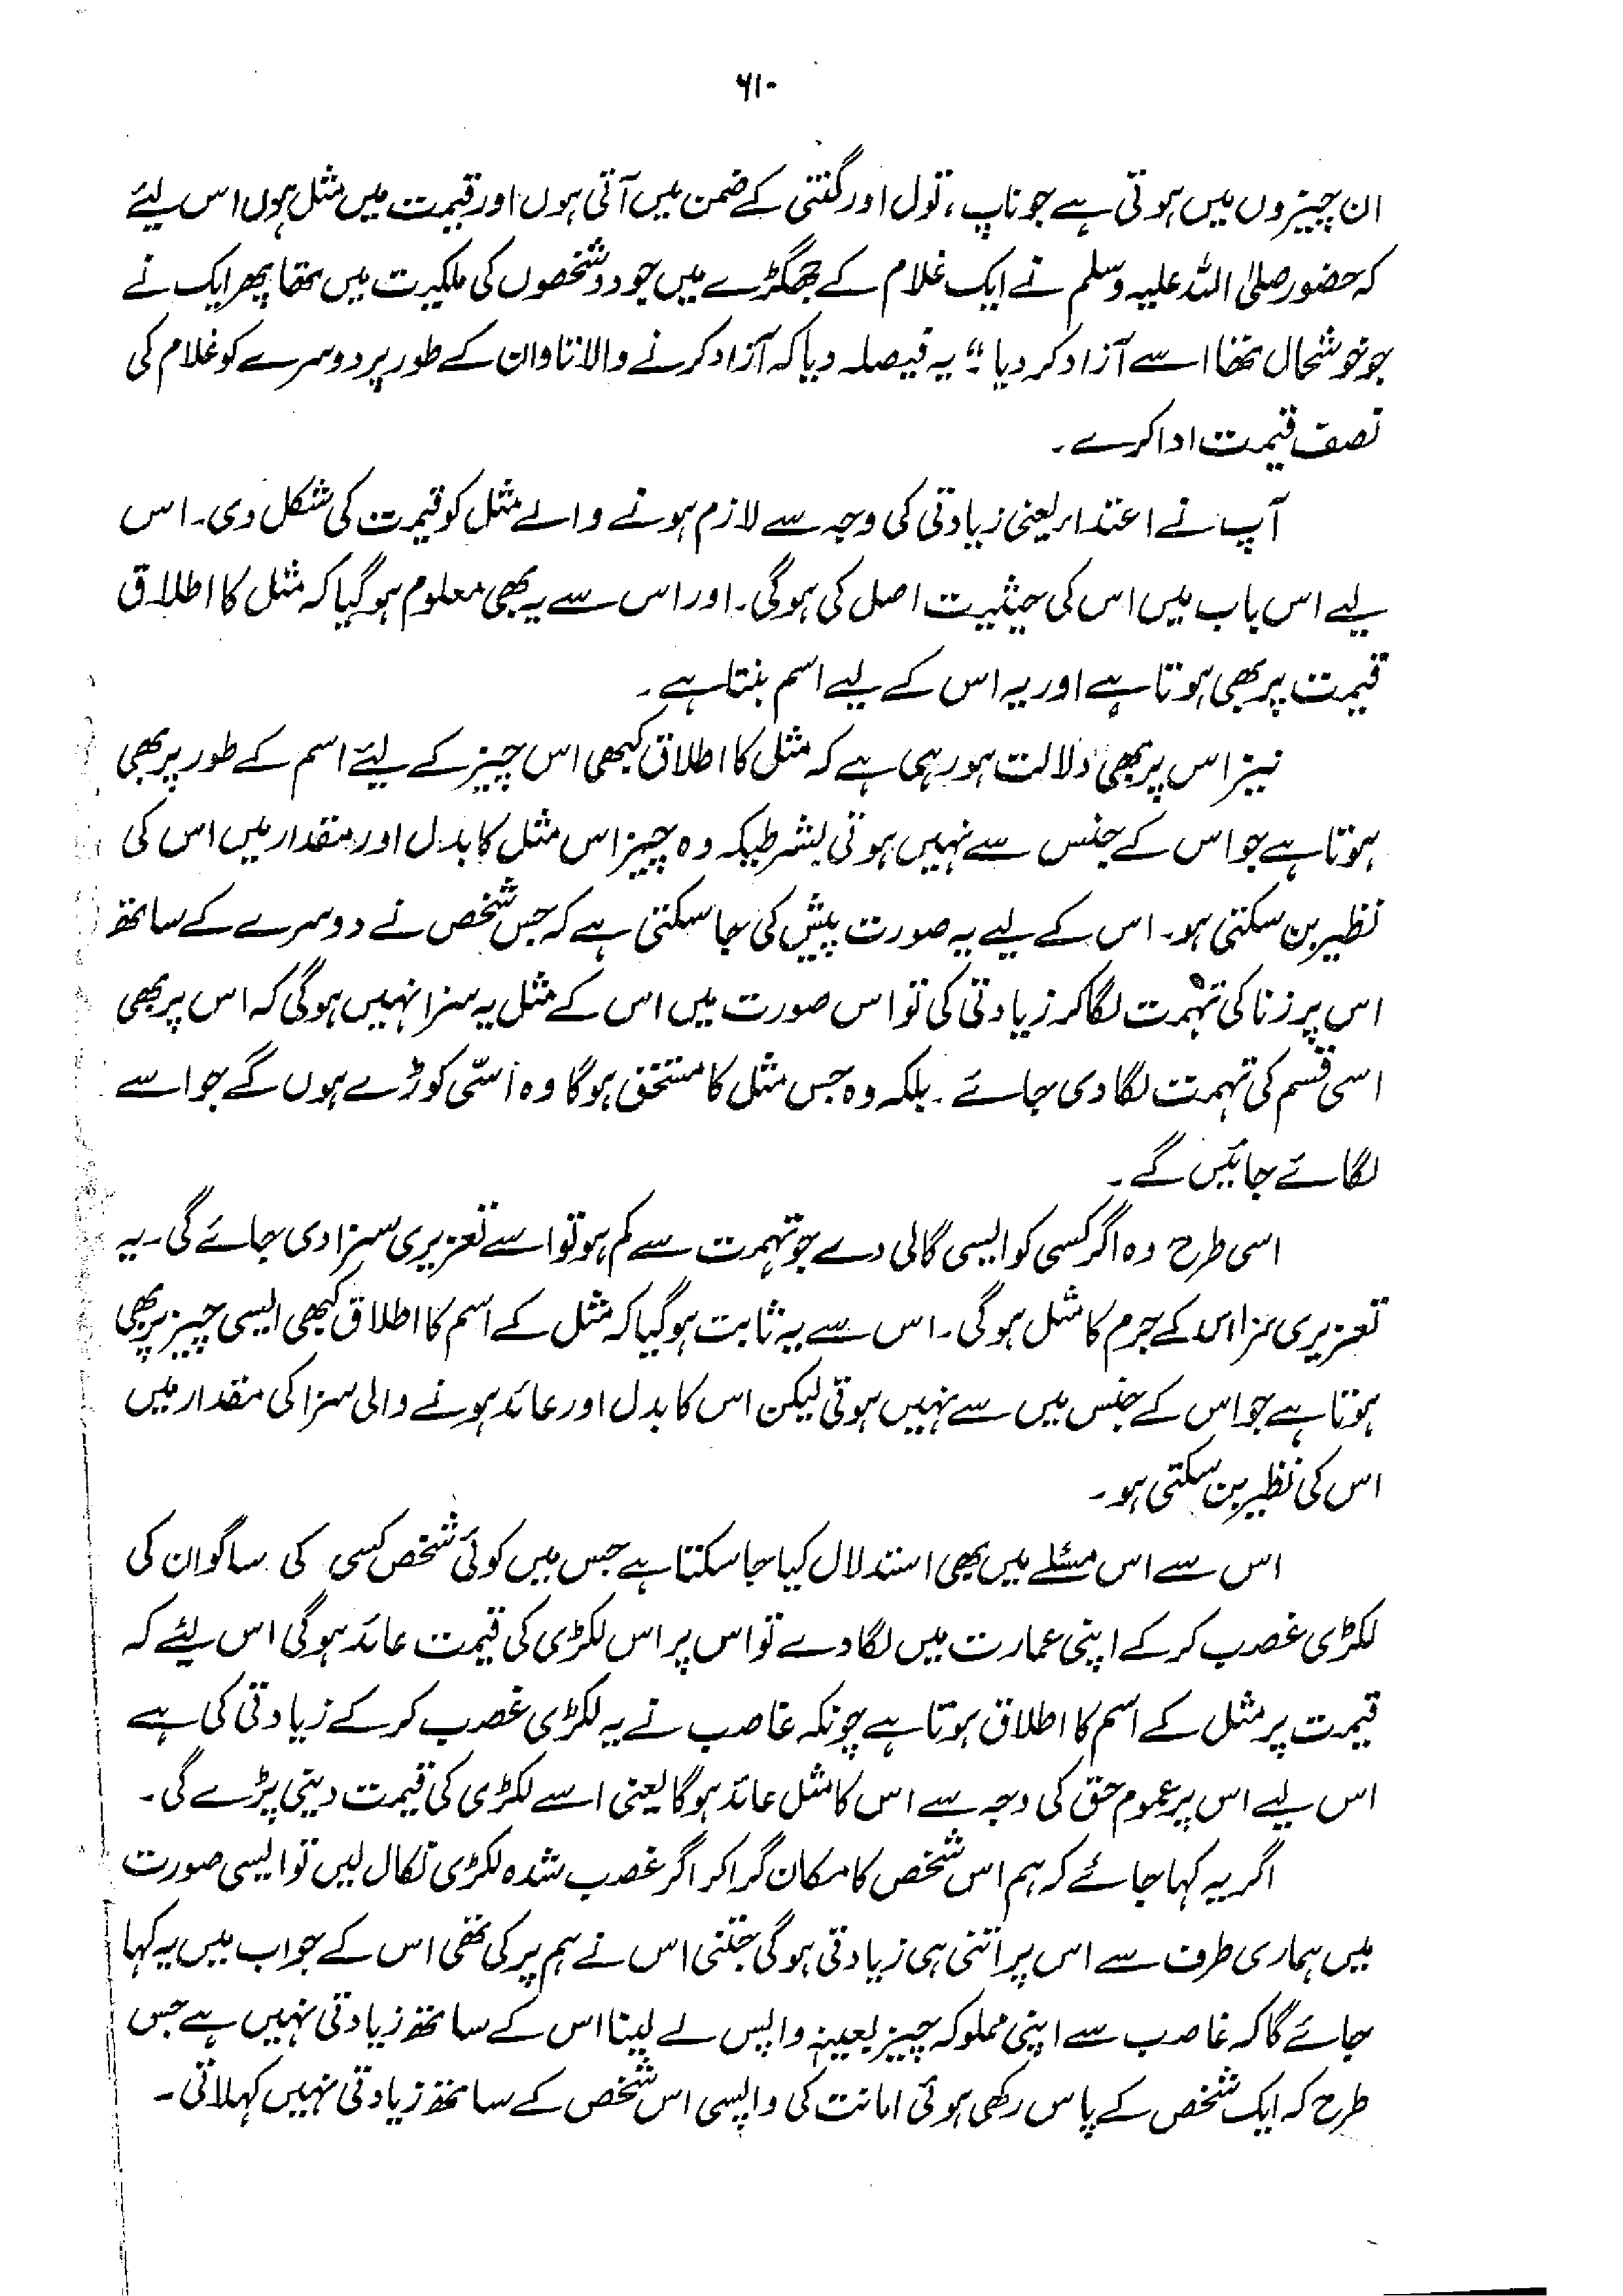 ۶۱۰
ان چیزوں میں ہوتی ہے جو ناپ، تول اور گنتی کے ضمن میں آتی ہوں اور قیمت میں مثل ہوں اس لیئے
کہ حضور صلی اللہ علیہ وسلم نے ایک غلام کے جھگڑے میں جو دو شخصوں کی ملکیت میں تھا پھر ایک نے
جو خوشحال تھا اسے آزاد کر دیا “ یہ فیصلہ دیا کہ آزاد کرنے والا تاوان کے طور پر دوسرے کو غلام کی
نصف قیمت ادا کرے۔
آپ نے اعتداء یعنی زیادتی کی وجہ سے لازم ہونے والے مثل کو قیمت کی شکل دی۔ اس
لیے اس باب میں اس کی حیثیت اصل کی ہوگی۔ اور اس سے یہ بھی معلوم ہوگیا کہ مثل کا اطلاق
قیمت پر بھی ہوتا ہے اور یہ اس کے لیے اسم بنتا ہے۔
نیز اس پر بھی دلالت ہو رہی ہے کہ مثل کا اطلاق کبھی اس چیز کے لیئے اسم کے طور پر بھی
ہوتا ہے جو اس کے جنس سے نہیں ہوتی بشرطیکہ وہ چیز اس مثل کا بدل اور مقدار میں اس کی
نظیر بن سکتی ہو۔ اس کے لیے یہ صورت پیش کی جا سکتی ہے کہ جس شخص نے دوسرے کے ساتھ
اس پر زنا کی تہمت لگا کر زیادتی کی تو اس صورت میں اس کے مثل یہ سزا نہیں ہوگی کہ اس پر بھی
اسی قسم کی تہمت لگا دی جائے۔ بلکہ وہ جس مثل کا مستحق ہوگا وہ اسّی کوڑے ہوں گے جو اسے
لگائے جائیں گے۔
اسی طرح وہ اگر کسی کو ایسی گالی دے جو تہمت سے کم ہو تو اسے تعزیری سزا دی جائے گی۔ یہ
تعزیری سزا اس کے جرم کا مثل ہوگی۔ اس سے یہ ثابت ہوگیا کہ مثل کے اسم کا اطلاق کبھی ایسی چیز پر بھی
ہوتا ہے جو اس کے جنس میں سے نہیں ہوتی لیکن اس کا بدل اور عائد ہونے والی سزا کی مقدار میں
اس کی نظیر بن سکتی ہو۔
اس سے اس مسئلے میں بھی استدلال کیا جا سکتا ہے جس میں کوئی شخص کسی کی ساگوان کی
لکڑی غصب کر کے اپنی عمارت میں لگا دے تو اس پر اس لکڑی کی قیمت عائد ہوگی اس لیئے کہ
قیمت پر مثل کے اسم کا اطلاق ہوتا ہے چونکہ غاصب نے یہ لکڑی غصب کر کے زیادتی کی ہے
اس لیے اس پر عموم حق کی وجہ سے اس کا مثل عائد ہوگا یعنی اسے لکڑی کی قیمت دینی پڑے گی۔
اگر یہ کہا جائے کہ ہم اس شخص کا مکان گرا کر اگر غصب شدہ لکڑی نکال لیں تو ایسی صورت
میں ہماری طرف سے اس پر اتنی ہی زیادتی ہوگی جتنی اس نے ہم پر کی تھی اس کے جواب میں یہ کہا
جائے گا کہ غاصب سے اپنی مملوکہ چیز بعینہٖ واپس لے لینا اس کے ساتھ زیادتی نہیں ہے جس
طرح کہ ایک شخص کے پاس رکھی ہوئی امانت کی واپسی اس شخص کے ساتھ زیادتی نہیں کہلاتی۔